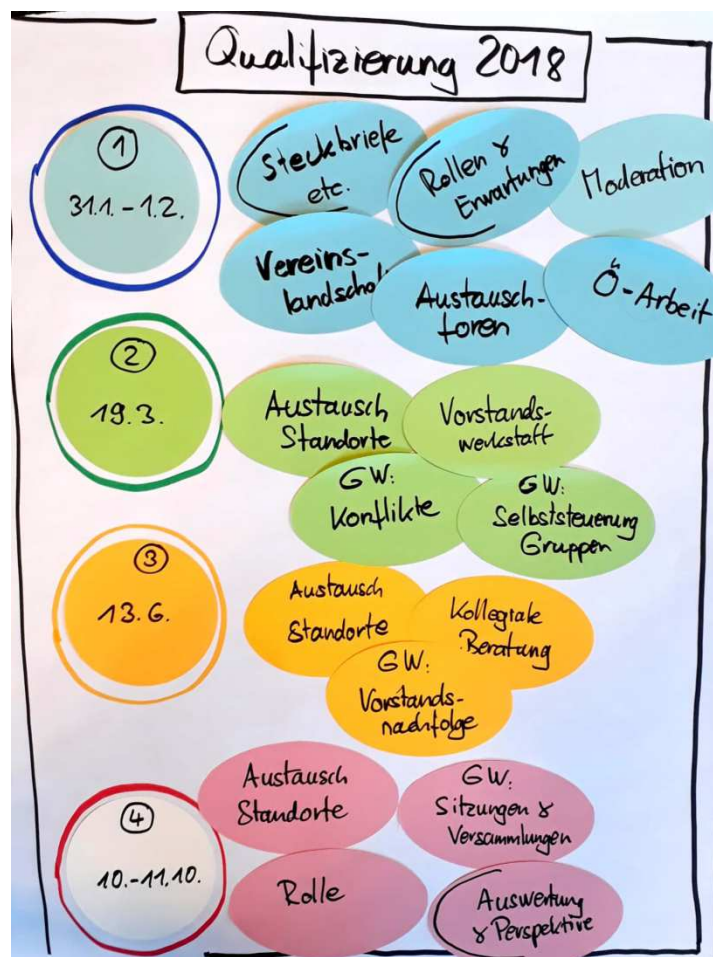 Qualifizierung 2018
1
31.1. - 1.2.
Steckbriefe
etc.
Rollen &
Erwartungen
Moderation
Vereins-
landschaf
Austausch-
foren
Ö-Arbeit
2
19.3.
Austausch
Standorte
Vorstands-
werkstatt
GW:
Konflikte
GW:
Selbststeuerung
Gruppen
3
13.6.
Austausch
Standorte
Kollegiale
Beratung
GW:
Vorstands-
nachfolge
4
10.-11.10.
Austausch
Standorte
GW:
Sitzungen &
Versammlungen
Rolle
Auswertung
& Perspektive